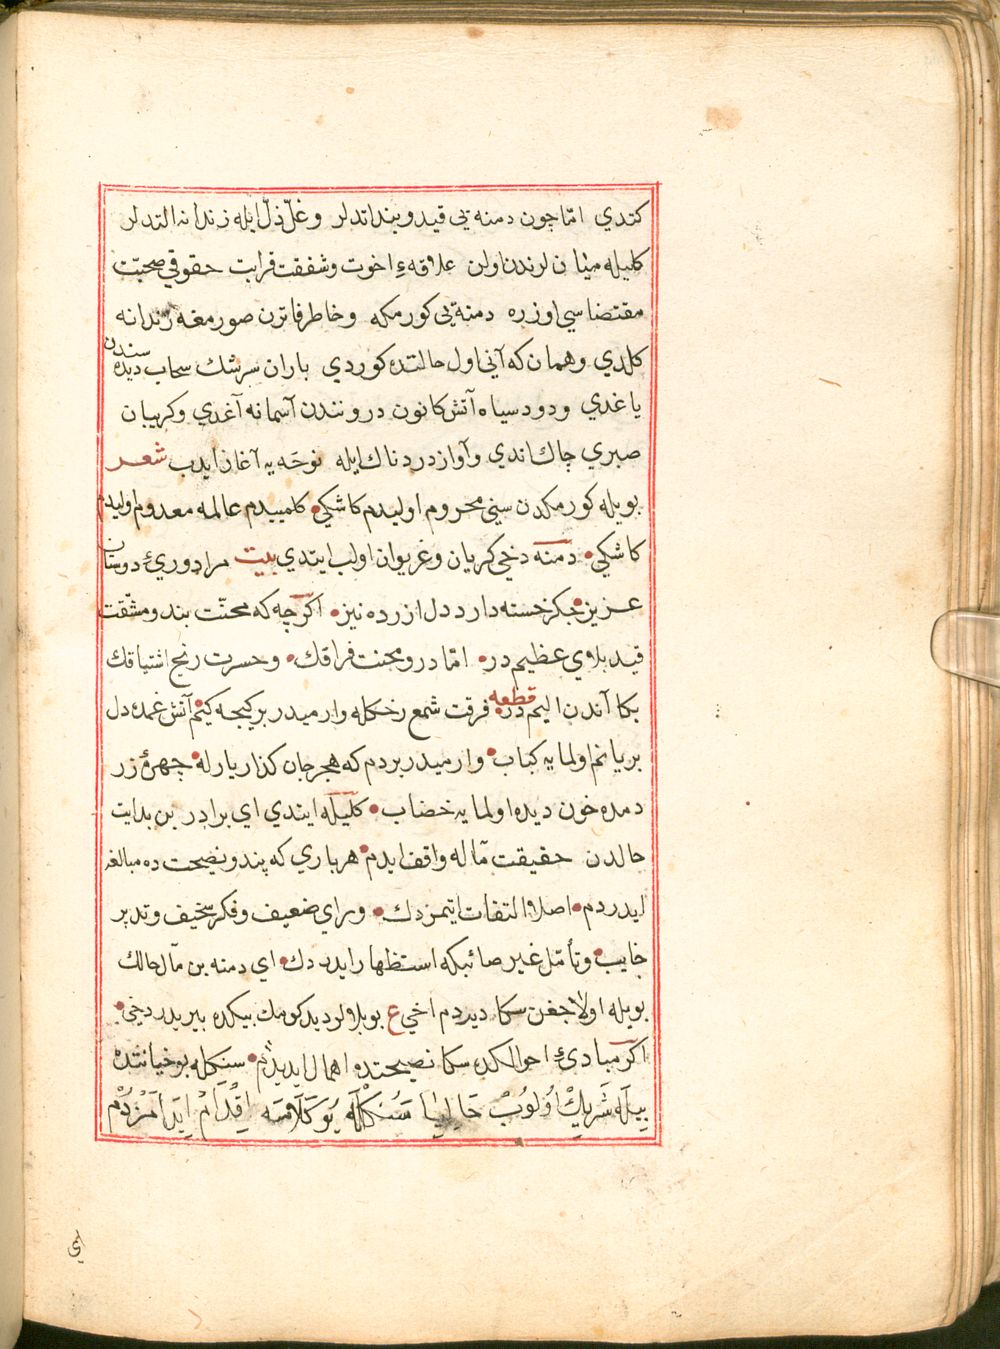 كتدي امّا چون دمنه يي قيد و بنداتدلر و غلّ ذلّ ايله زندانه التدلر
كليله ميانلرندن اولن علاقهء اخوت و شفقت قرابت حقوقي صحبّت
مقتضاسي اوزره دمنه يي كورمكه و خاطر فاترن صورمغه زندانه
كلدي و همان كه آني اول حالتده كوردي باران سرشك سحاب ديده سندن
ياغدي و دود سياه آتش كانون دروننندن آسمانه آغدي و كريبان
صبري چاك اندي و آواز دردناك ايله نوحه يه آغاز ايدب شعر
بويله كورمكدن سني محروم اوليدم كاشكي كلمييدم عالمه معدوم اوليدم
كاشكي دمنه دخي كريان و غريوان اولب ايتدي بيت مرا دورئ دوستان
عزيز جكر خسته دارد دل ازرده نيز اكرچه كه محنّت بند و مشقّت
قيد بلاي عظيم در امّا درد محنت فراقك و حسرت رنج اشتياقك
بكا آندن اليم در قطعه فرقت شمع رخكله وارميدر بر كيجه كيم آتش غمده دل
بريانم اولمايه كباب وارميدر بر دم كه هجر جان كذار يارله چهرۀ زر
دمده خون ديده اولمايه خضاب كليله ايتدي اي برادر بن بدايت
حالدن حقيقت مآله واقف ايدم هر باري كه پند و نصيحت ده مبالغه
ايدردم اصلا التفات ايتمزدك و راي ضعيف و فكر سخيف و تدبير
خايب و تأمّل غير صائبكه استظهار ايدردك اي دمنه بن مآل حالك
بويله اولاجغن سكا ديردم اخي ع بويلا اولور ديدكومك بيكده بيريدر دخي
اكر مبادئ احوالكده سكا نصيحتده اهمال ايديدم سنكله بو خيانتده
بيله شريك اولوب حاليا سنكله بو كلامسه اقدام ايدامزدم
اي